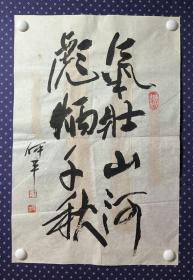 氣壯山河
彪炳千秋